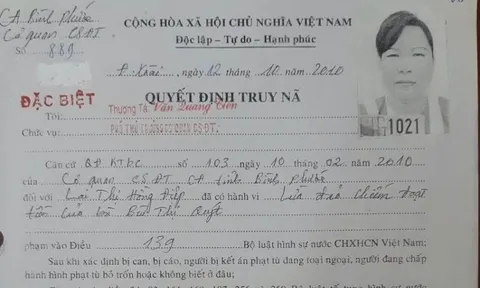 CA Bình Phước
Cơ quan CSĐT
Số 889
CỘNG HÒA XÃ HỘI CHỦ NGHĨA VIỆT NAM
Độc lập – Tự do – Hạnh phúc
ngày 12 tháng 10 năm 2010
ĐẶC BIỆT
QUYẾT ĐỊNH TRUY NÃ
1021
Tôi: Thượng Tá: Văn Quang Tiến
Chức vụ: PHÓ THỦ TRƯỞNG CƠ QUAN CSĐT.
Căn cứ QĐ KTBC số 103 ngày 10 tháng 02 năm 2010
của Cơ quan CSĐT CA tỉnh Bình Phước
đối với Lại Thị Hồng Điệp đã có hành vi Lừa đảo chiếm đoạt
tiền của bà Bùi Thị Quyết
phạm vào Điều 139 Bộ luật hình sự nước CHXHCN Việt Nam;
Sau khi xác định bị can, bị cáo, người bị kết án phạt tù đang tại ngoại, người đang chấp
hành hình phạt tù bỏ trốn hoặc không biết ở đâu;